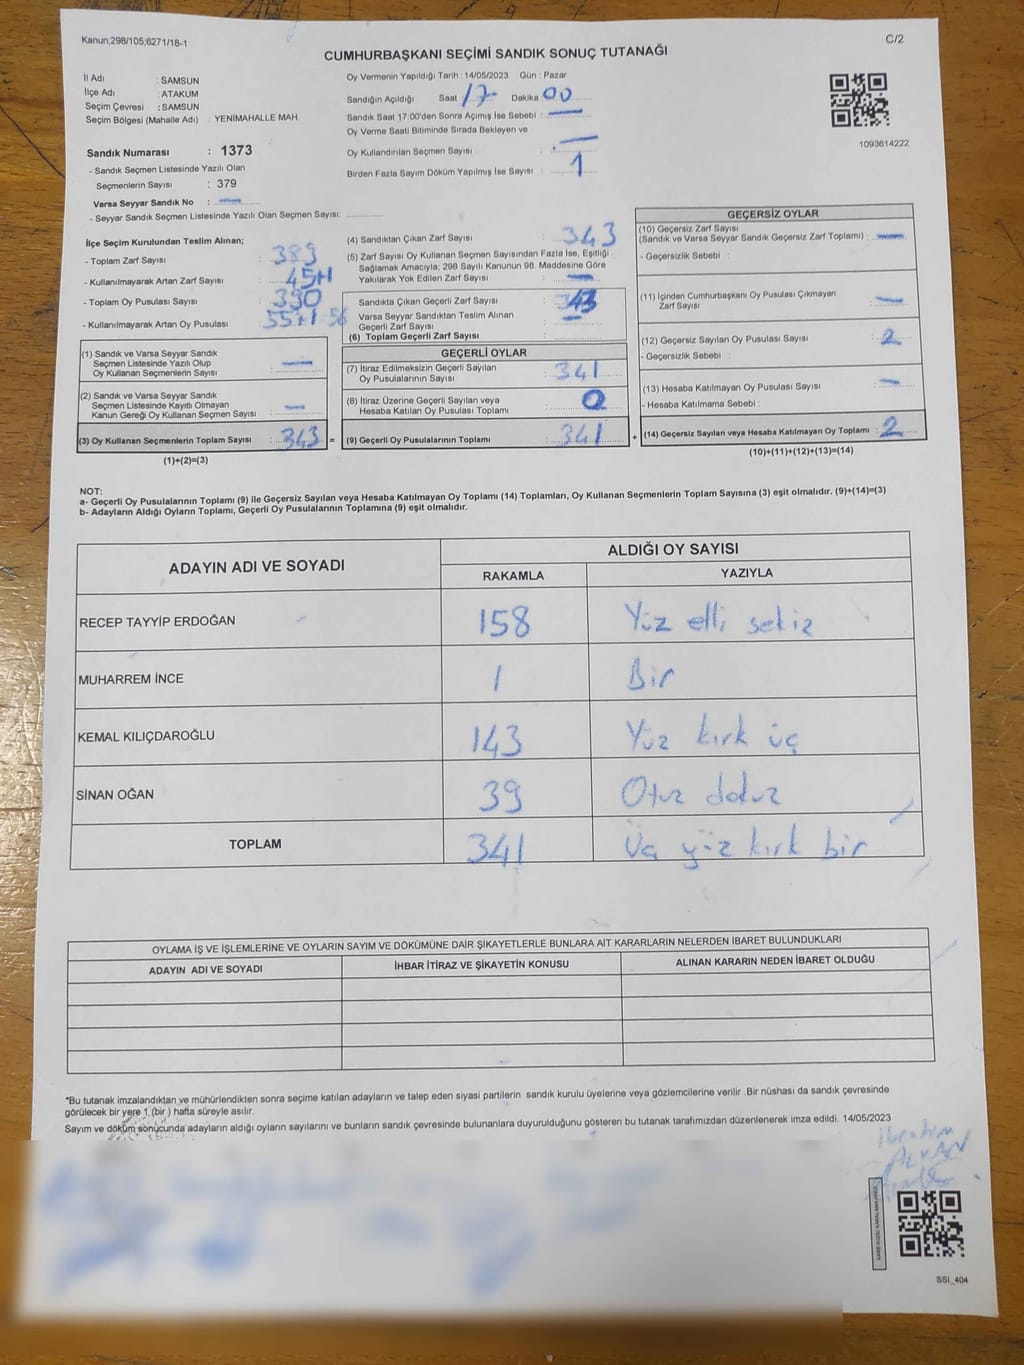 Kanun;298/105;6271/18-1
C/2
CUMHURBAŞKANI SEÇİMİ SANDIK SONUÇ TUTANAĞI
İl Adı : SAMSUN
İlçe Adı : ATAKUM
Seçim Çevresi : SAMSUN
Seçim Bölgesi (Mahalle Adı) : YENİMAHALLE MAH.
Oy Vermenin Yapıldığı Tarih : 14/05/2023 Gün : Pazar
Sandığın Açıldığı Saat 17 Dakika 00
Sandık Saat 17:00'den Sonra Açılmış İse Sebebi : —
Oy Verme Saati Bitiminde Sırada Bekleyen ve
Oy Kullandırılan Seçmen Sayısı : —
Birden Fazla Sayım Döküm Yapılmış İse Sayısı : 1
1093614222
Sandık Numarası : 1373
- Sandık Seçmen Listesinde Yazılı Olan
Seçmenlerin Sayısı : 379
Varsa Seyyar Sandık No : —
- Seyyar Sandık Seçmen Listesinde Yazılı Olan Seçmen Sayısı:
İlçe Seçim Kurulundan Teslim Alınan;
- Toplam Zarf Sayısı : 389
- Kullanılmayarak Artan Zarf Sayısı : 45+1
- Toplam Oy Pusulası Sayısı : 390
- Kullanılmayarak Artan Oy Pusulası : 55+1 56
(1) Sandık ve Varsa Seyyar Sandık
Seçmen Listesinde Yazılı Olup
Oy Kullanan Seçmenlerin Sayısı : —
(2) Sandık ve Varsa Seyyar Sandık
Seçmen Listesinde Kayıtlı Olmayan
Kanun Gereği Oy Kullanan Seçmen Sayısı : —
(3) Oy Kullanan Seçmenlerin Toplam Sayısı : 343 =
(1)+(2)=(3)
(4) Sandıktan Çıkan Zarf Sayısı : 343
(5) Zarf Sayısı Oy Kullanan Seçmen Sayısından Fazla İse, Eşitliği
Sağlamak Amacıyla; 298 Sayılı Kanunun 98. Maddesine Göre
Yakılarak Yok Edilen Zarf Sayısı : —
Sandıkta Çıkan Geçerli Zarf Sayısı : 343
Varsa Seyyar Sandıktan Teslim Alınan
Geçerli Zarf Sayısı : —
(6) Toplam Geçerli Zarf Sayısı :
GEÇERLİ OYLAR
(7) İtiraz Edilmeksizin Geçerli Sayılan
Oy Pusulalarının Sayısı : 341
(8) İtiraz Üzerine Geçerli Sayılan veya
Hesaba Katılan Oy Pusulası Toplamı : 0
(9) Geçerli Oy Pusulalarının Toplamı : 341 +
GEÇERSİZ OYLAR
(10) Geçersiz Zarf Sayısı
(Sandık ve Varsa Seyyar Sandık Geçersiz Zarf Toplamı) : —
- Geçersizlik Sebebi :
(11) İçinden Cumhurbaşkanı Oy Pusulası Çıkmayan
Zarf Sayısı : —
(12) Geçersiz Sayılan Oy Pusulası Sayısı : 2
- Geçersizlik Sebebi :
(13) Hesaba Katılmayan Oy Pusulası Sayısı : —
- Hesaba Katılmama Sebebi :
(14) Geçersiz Sayılan veya Hesaba Katılmayan Oy Toplamı : 2
(10)+(11)+(12)+(13)=(14)
NOT:
a- Geçerli Oy Pusulalarının Toplamı (9) ile Geçersiz Sayılan veya Hesaba Katılmayan Oy Toplamı (14) Toplamları, Oy Kullanan Seçmenlerin Toplam Sayısına (3) eşit olmalıdır. (9)+(14)=(3)
b- Adayların Aldığı Oyların Toplamı, Geçerli Oy Pusulalarının Toplamına (9) eşit olmalıdır.
ADAYIN ADI VE SOYADI
ALDIĞI OY SAYISI
RAKAMLA YAZIYLA
RECEP TAYYİP ERDOĞAN 158 Yüz elli sekiz
MUHARREM İNCE 1 Bir
KEMAL KILIÇDAROĞLU 143 Yüz kırk üç
SİNAN OĞAN 39 Otuz dokuz
TOPLAM 341 Üç yüz kırk bir
OYLAMA İŞ VE İŞLEMLERİNE VE OYLARIN SAYIM VE DÖKÜMÜNE DAİR ŞİKAYETLERLE BUNLARA AİT KARARLARIN NELERDEN İBARET BULUNDUKLARI
ADAYIN ADI VE SOYADI İHBAR İTİRAZ VE ŞİKAYETİN KONUSU ALINAN KARARIN NEDEN İBARET OLDUĞU
*Bu tutanak imzalandıktan ve mühürlendikten sonra seçime katılan adayların ve talep eden siyasi partilerin sandık kurulu üyelerine veya gözlemcilerine verilir. Bir nüshası da sandık çevresinde
görülecek bir yere 1 (bir) hafta süreyle asılır.
Sayım ve döküm sonucunda adayların aldığı oyların sayılarını ve bunların sandık çevresinde bulunanlara duyurulduğunu gösteren bu tutanak tarafımızdan düzenlenerek imza edildi. 14/05/2023
İbrahim
SSI_404